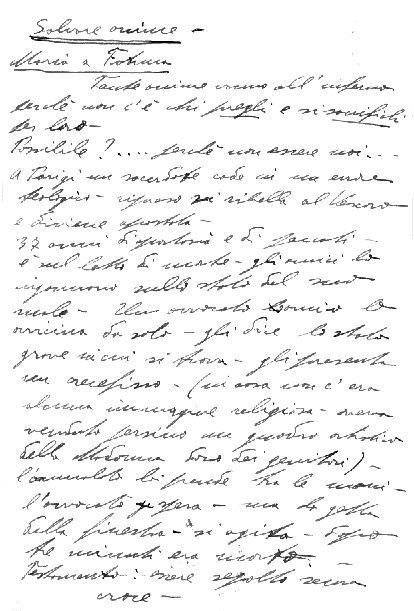 Salvare anime -
Maria a Fatima
Tante anime vanno all'inferno
perché non c'è chi preghi e si sacrifichi
per loro -
Possibile? .... perché non essere noi ...
A Parigi un sacerdote cade in un errore
teologico - si ribella al Vescovo
e diviene apostata -
37 anni di apostasia e di peccati -
è sul letto di morte - gli amici lo
ingannano sullo stato del suo
male - Un avvocato amico lo
avvicina da solo - gli dice lo stato
grave in cui si trova - gli presenta
un crocefisso - (in casa non c'era
alcuna immagine religiosa - aveva
venduto persino un quadro artistico
della Madonna dono dei genitori) -
l'ammalato lo prende tra le mani -
l'avvocato spera - ma lo getta
dalla finestra - si agita - dopo
tre minuti era morto.
Testamento: essere sepolto senza
croce -